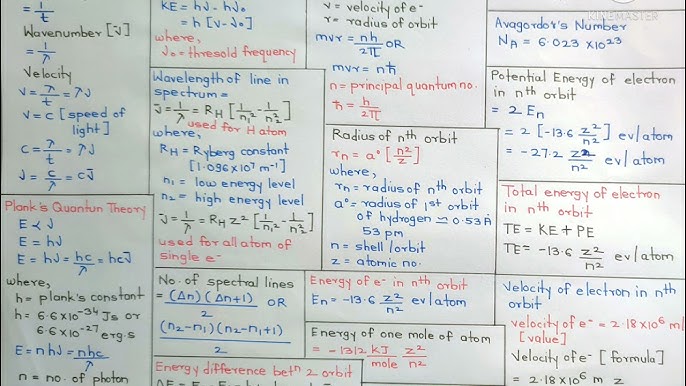 = 1/t
Wavenumber [ν̄]
= 1/λ
Velocity
v = λ/t = λν
v = c [speed of light]
c = λ/t = λν
ν = c/λ = cν̄
Plank's Quantun Theory
E ∝ ν
E = hν
E = hν = hc/λ = hcν̄
where,
h = plank's constant
h = 6.6×10⁻³⁴ Js or
6.6×10⁻²⁷ erg.s
E = nhν = nhc/λ
n = no. of photon
KE = hν - hν₀
= h [ν-ν₀]
where,
ν₀ = thresold frequency
Wavelength of line in
spectrum =
ν̄ = 1/λ = RH [1/n₁² - 1/n₂²]
used for H atom
where,
RH = Ryberg constant
[1.096×10⁷ m⁻¹]
n₁ = low energy level
n₂ = high energy level
ν̄ = 1/λ = RH Z² [1/n₁² - 1/n₂²]
used for all atom of
single e⁻
No. of spectral lines
= (Δn)(Δn+1)/2 OR
(n₂-n₁)(n₂-n₁+1)/2
Energy difference betⁿ 2 orbit
v = velocity of e⁻
r = radius of orbit
mvr = nh/2π OR
mvr = nħ
n = principal quantum no.
ħ = h/2π
Radius of nth orbit
rn = a° [n²/z]
where,
rn = radius of nth orbit
a° = radius of 1st orbit
of hydrogen ≃ 0.53Å
53 pm
n = shell/orbit
z = atomic no.
Energy of e⁻ in nth orbit
En = -13.6 z²/n² ev/atom
Energy of one mole of atom
= -1312 kJ/mole z²/n²
KINEMASTER
Avagordor's Number
NA = 6.023×10²³
Potential Energy of electron
in nth orbit
= 2 En
= 2 [-13.6 z²/n²] ev/atom
= -27.2 z²/n² ev/atom
Total energy of electron
in nth orbit
TE = KE + PE
TE = -13.6 z²/n² ev/atom
Velocity of electron in nth
orbit
velocity of e⁻ = 2.18×10⁶ m/
[value]
Velocity of e⁻ [formula]
= 2.18×10⁶ z